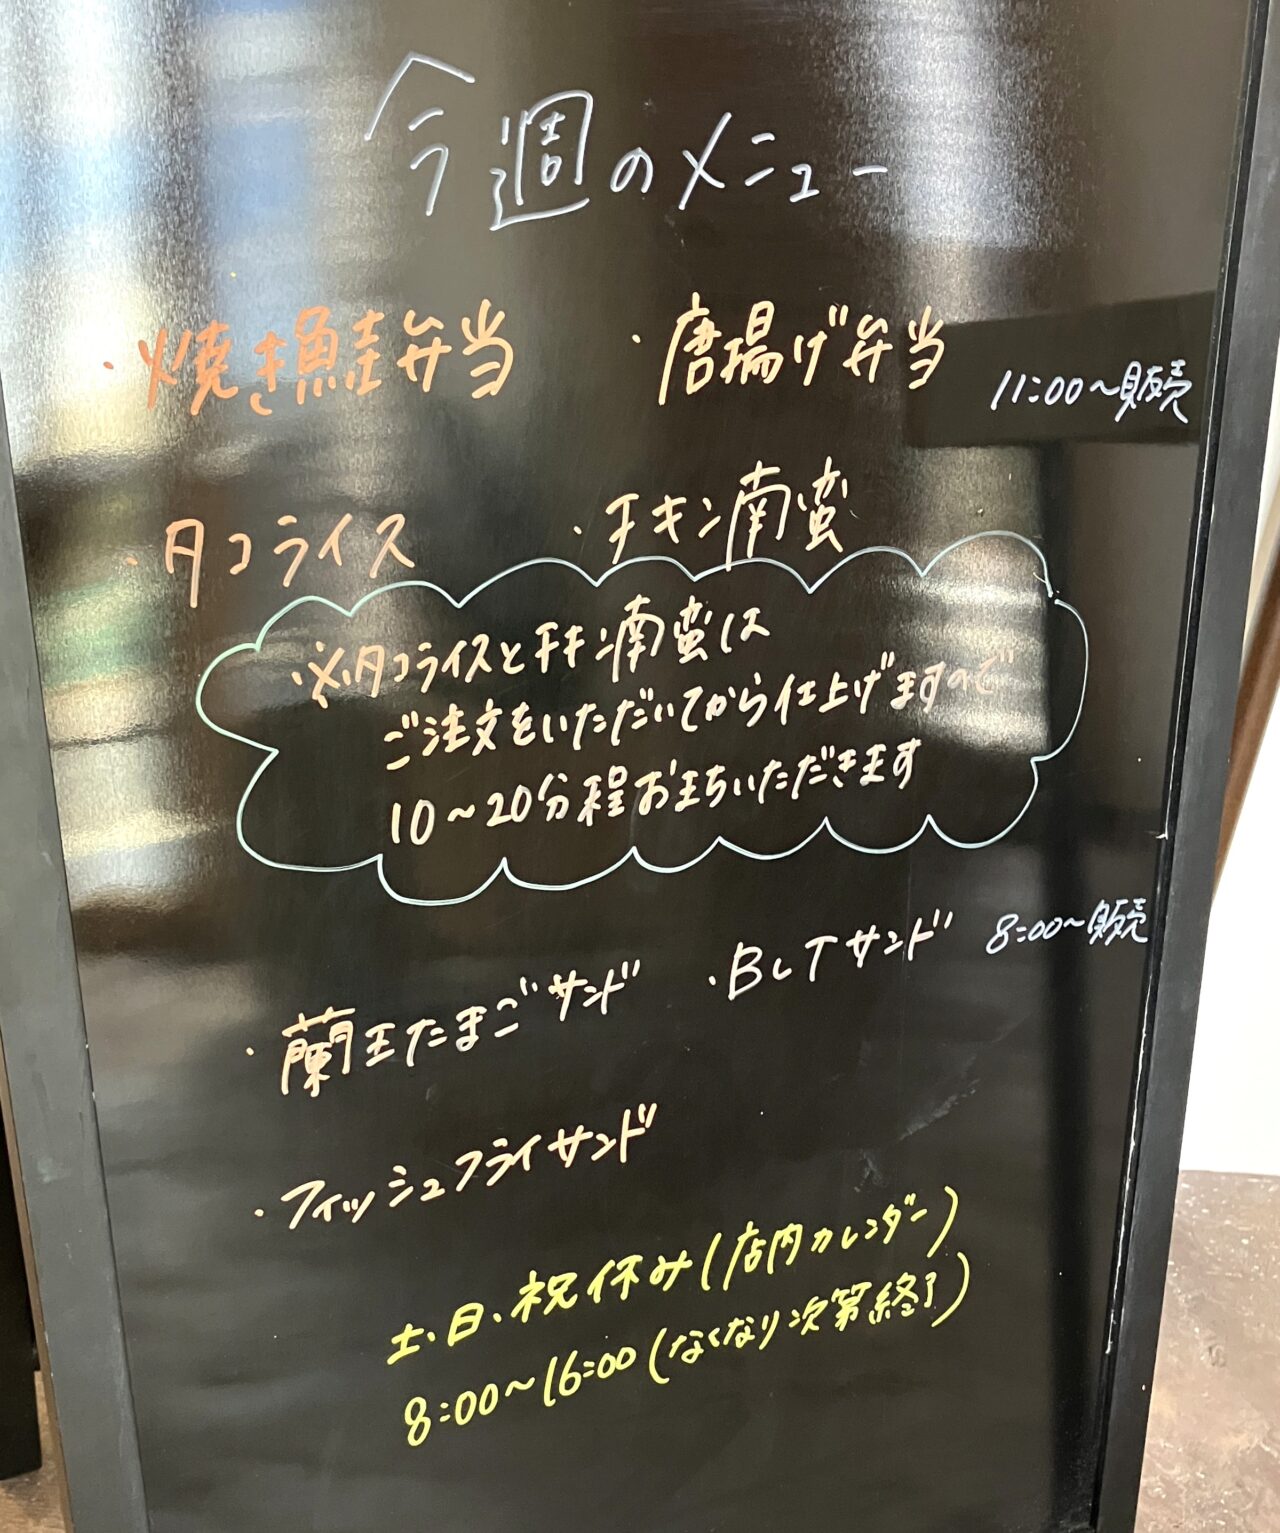 今週のメニュー
・焼き鮭弁当 ・唐揚げ弁当 11:00〜販売
・タコライス ・チキン南蛮
※タコライスとチキン南蛮は
ご注文をいただいてから仕上げますので
10〜20分程お待ちいただきます
・蘭王たまごサンド ・BLTサンド 8:00〜販売
・フィッシュフライサンド
土・日・祝休み(店内カレンダー)
8:00〜16:00(なくなり次第終了)